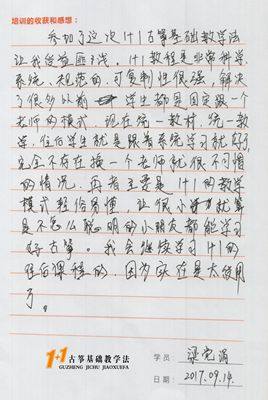 培训的收获和感想:
参加了这次1+1古筝基础教学法
让我受益匪浅。1+1教程是非常科学、
系统、规范的,可复制性很强,解决
了很多以前 学生都是固定跟一个
老师的模式 现在统一教材,统一教
学,往后学生就是跟着系统学习就好了
完全不存在换一个老师就很不习惯
的情况,再者主要是1+1的教学
模式轻松易懂,让很小 就算
是不怎么聪明的小朋友都能学习
好古筝。我会继续学习1+1的
往后课程的,因为实在是太受用
了。
1+1古筝基础教学法
GUZHENG JICHU JIAOXUEFA
学员:梁宛涓
日期:2017.09.14.